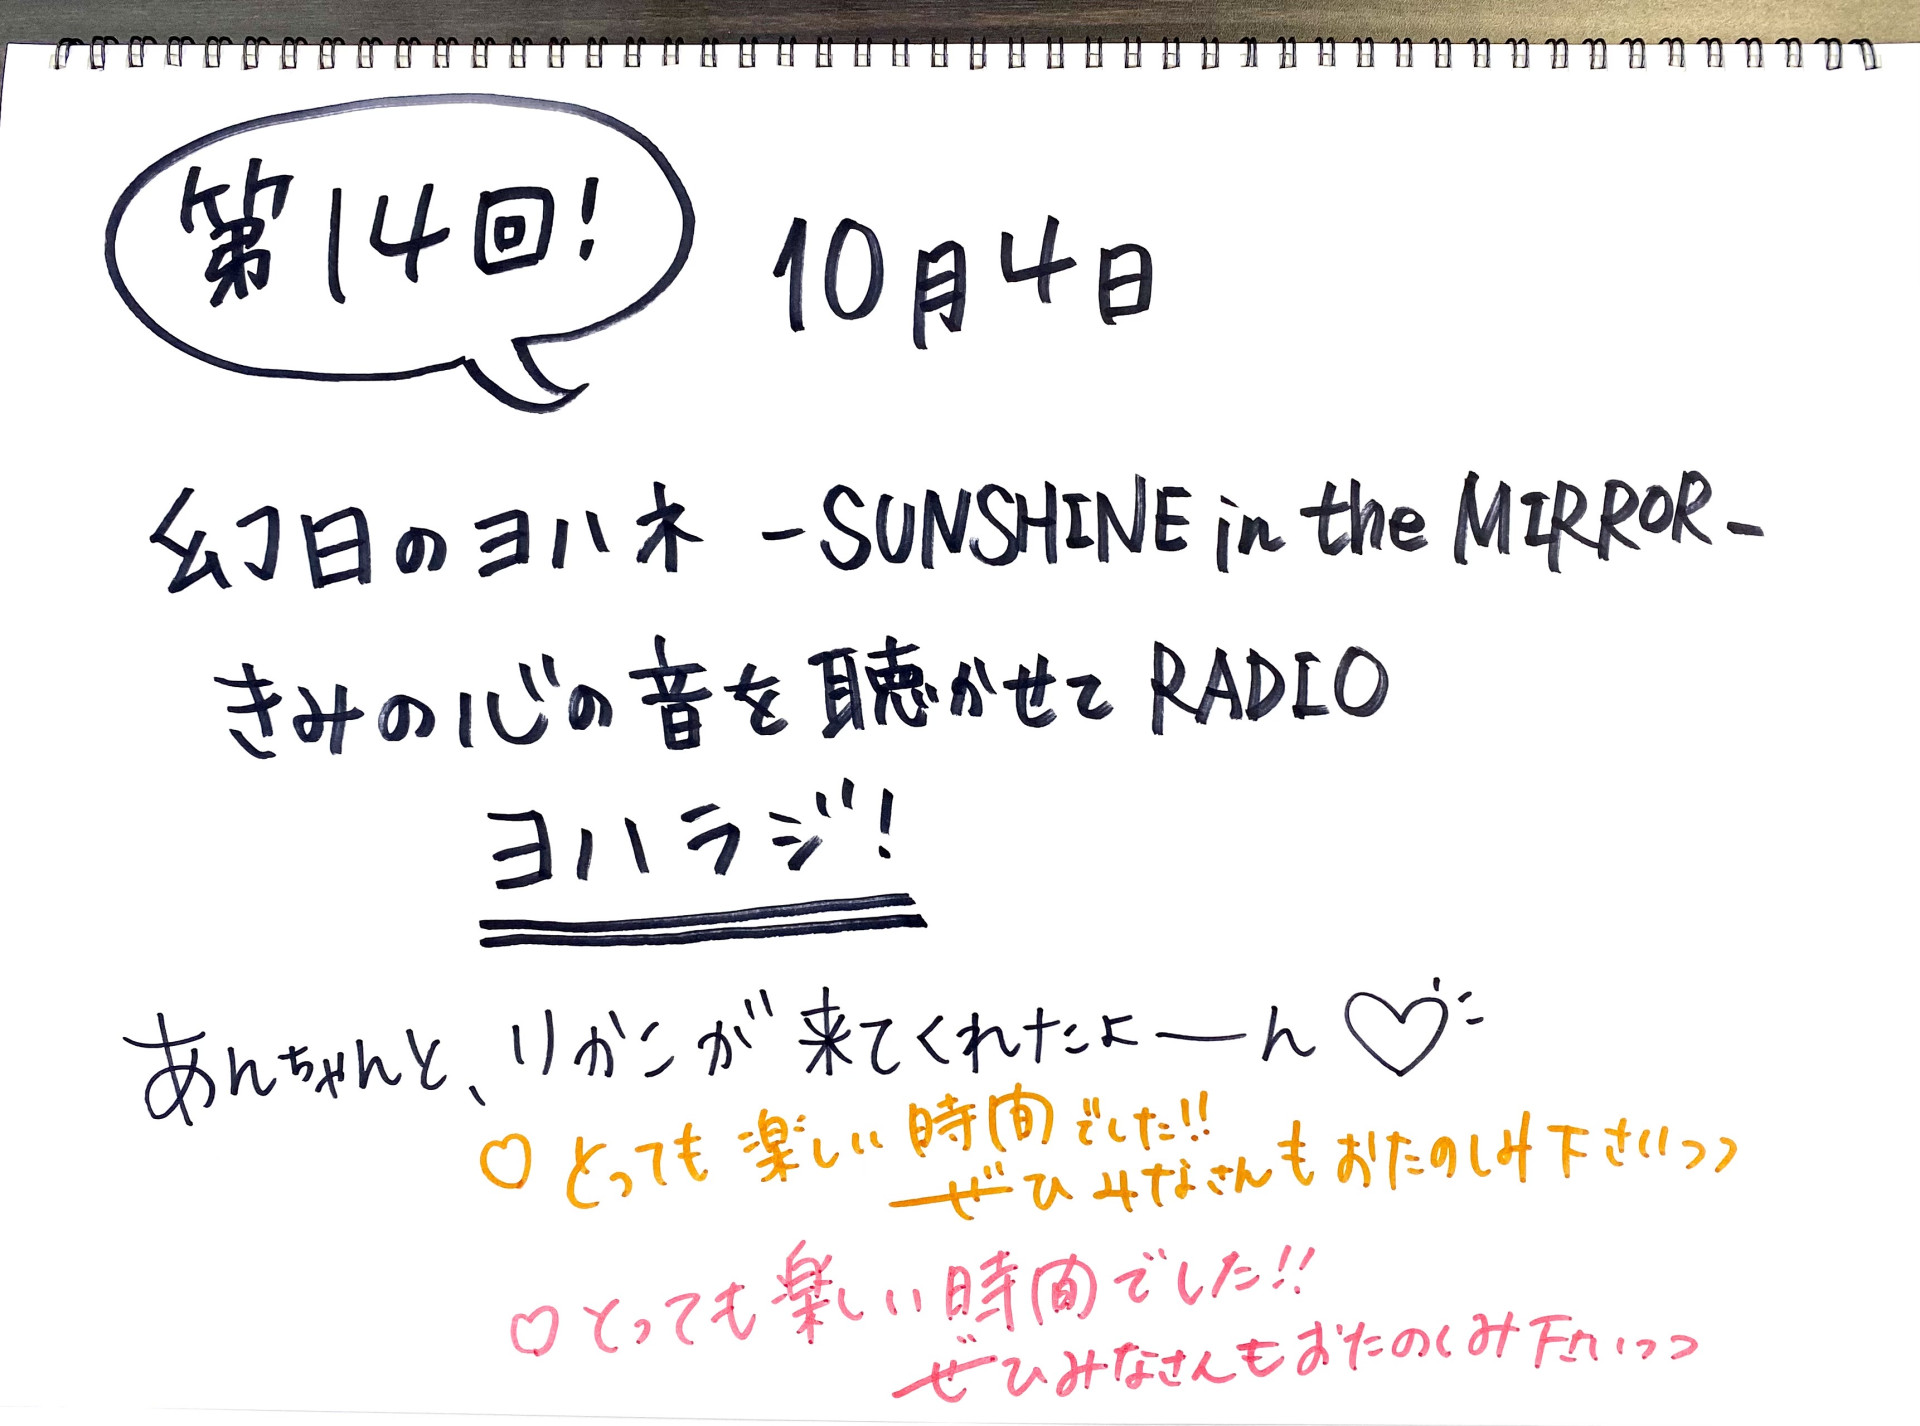 第14回!
10月4日
幻日のヨハネ -SUNSHINE in the MIRROR-
きみの心の音を聴かせて RADIO
ヨハラジ!
あんちゃんと、りかこが来てくれたよーん♡
♡とっても楽しい時間でした!!
ぜひみなさんもおたのしみ下さいっっ
♡とっても楽しい時間でした!!
ぜひみなさんもおたのしみ下さいっっ